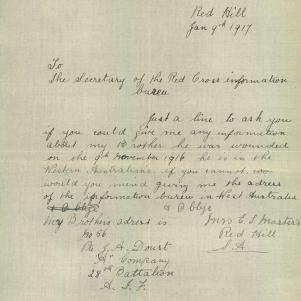 Red Hill
Jan 9th 1917
To
The Secretary of the Red Cross information
bureu
Just a line to ask you
if you could give me any information
about my Brother he was wounded
on the 9th November 1916 he is in the
Western Australians. if you cannot,
would you mend giving me the adress
of the information bureu in West Australia
& Oblige
My Brothers adress is Mrs E S Masters
No 56 Red Hill
Pte G. A. Doust S.A.
"A" Company
28th Battalion
A. I. F.